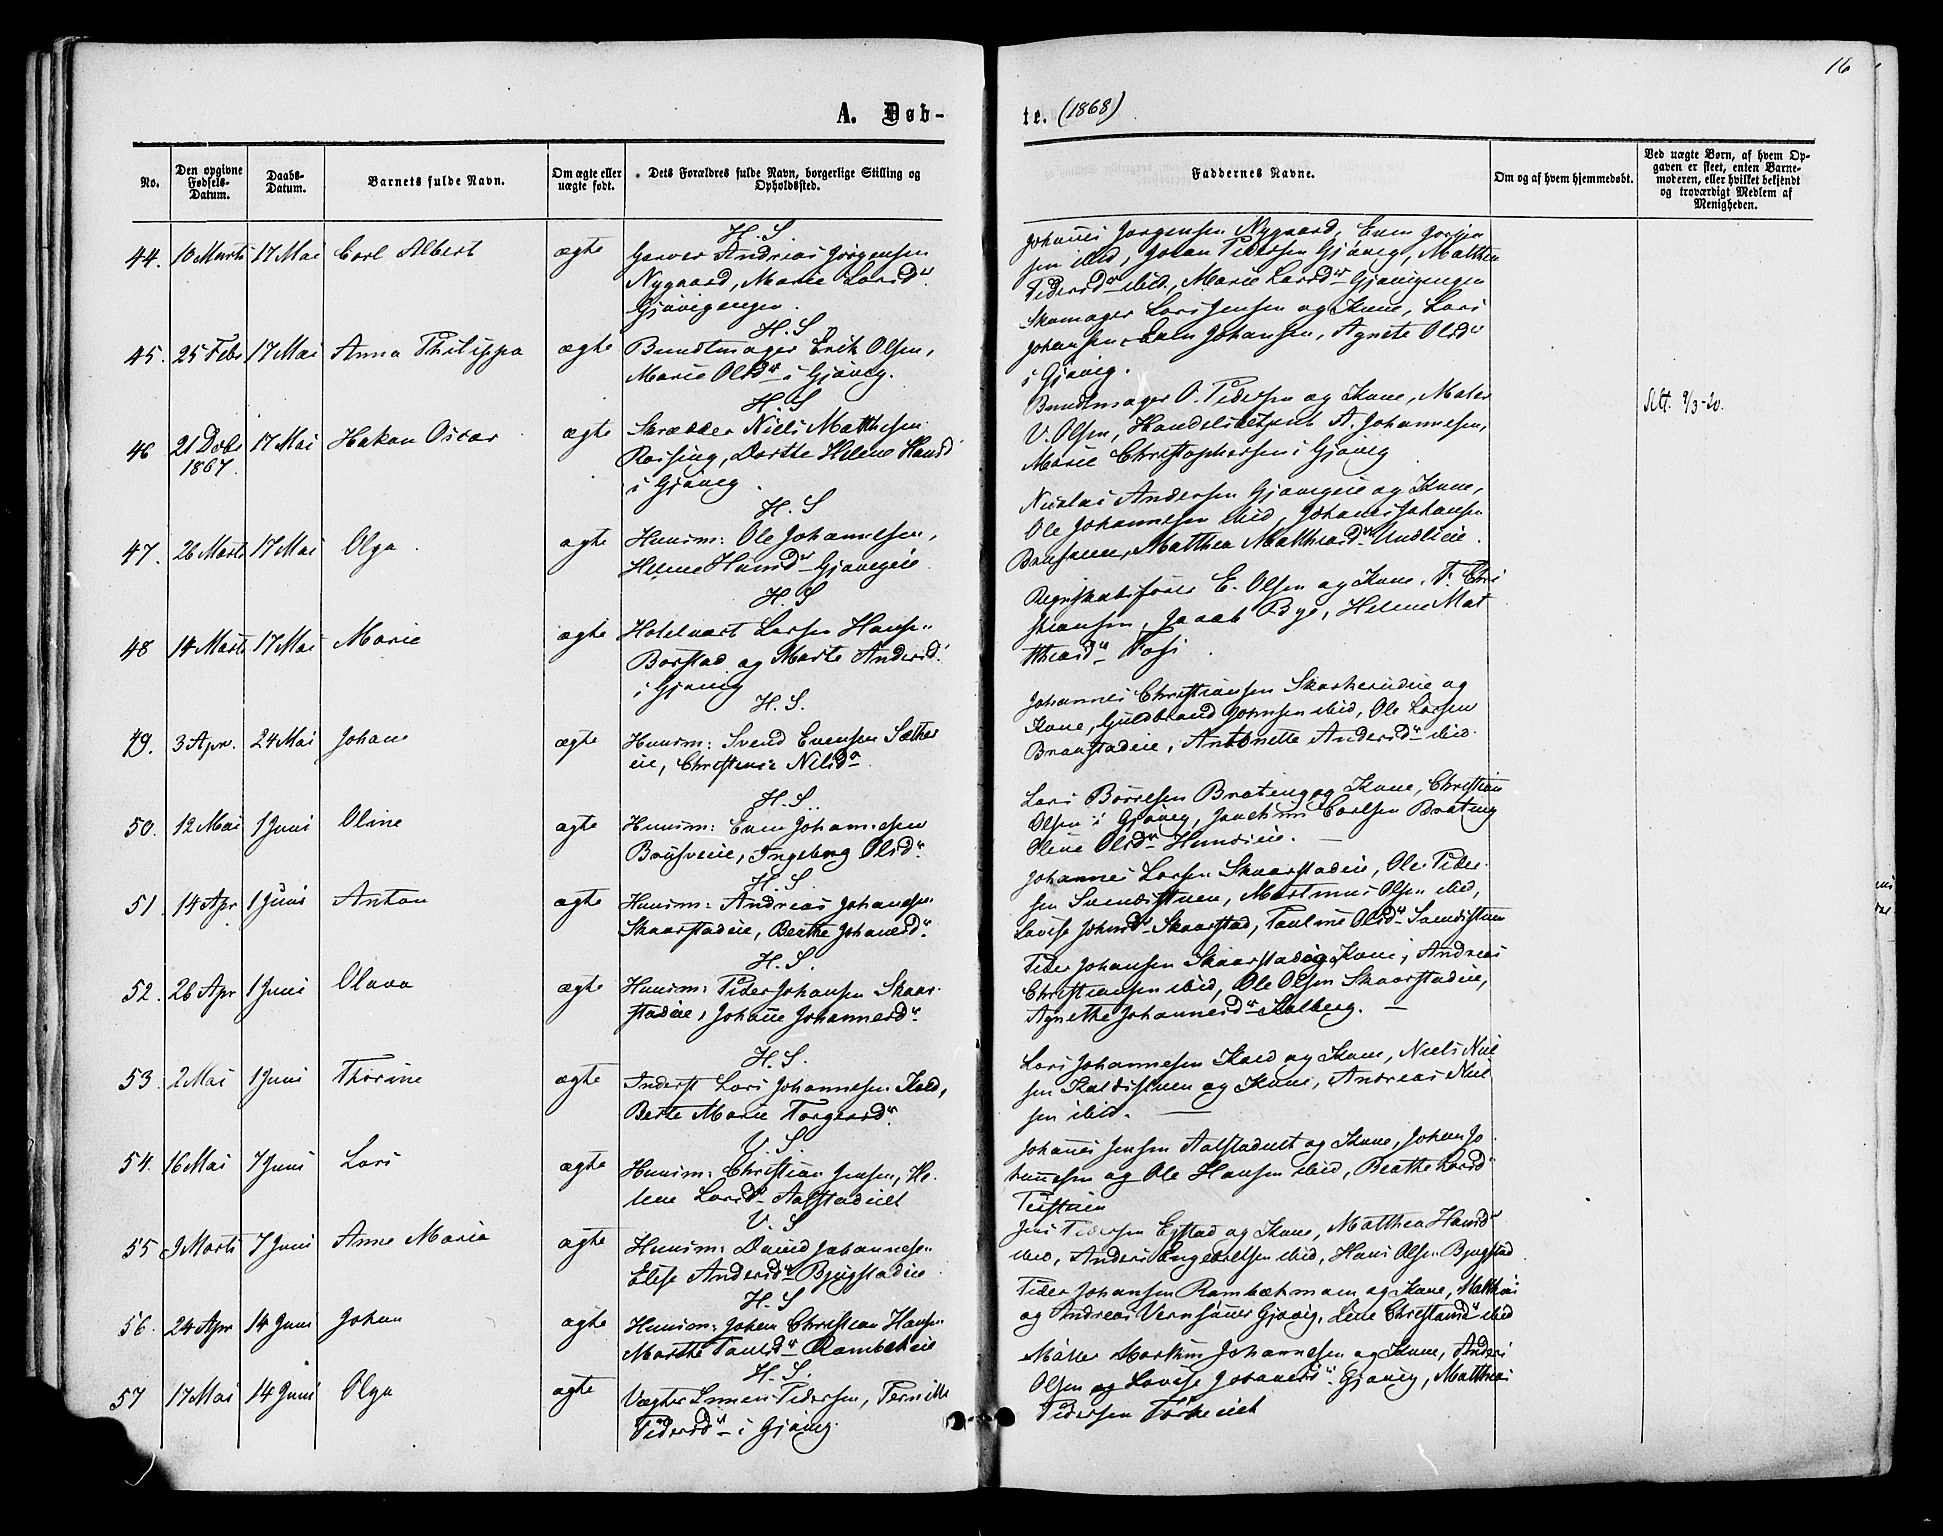 16
A. Døb-
te. (1868)
No.
Den opgivne Fødsels-Datum.
Daabs-Datum.
Barnets fulde Navn.
Om ægte eller uægte født.
Dets Forældres fulde Navn, borgerlige Stilling og Opholdssted.
Faddernes Navne.
Om og af hvem hjemmedøbt.
Ved uægte Børn, af hvem Opgaven er skeet, enten Barnemoderen, eller hvilket bekjendt og troværdigt Medlem af Menigheden.
44. 10 Marts 17 Mai Carl Albert ægte
H. S.
Garver Andreas Jørgensen
Nygaard, Marie Larsd.
Gjøvigengen.
Johannes Jørgensen Nygaard, Even Jørgen
sen ibid, Johan Pedersen Gjøvig, Matthea
Pedersd. ibid, Marie Larsd. Gjøvigengen
45. 25 Febr 17 Mai Anna Philippa ægte
H. S.
Bundtmager Erik Olsen,
Marie Olsd. i Gjøvig.
Skomager Lars Jensen og Kone, Lars
Johansen, Even Johansen, Agnete Olsd.
i Gjøvig.
46 21 Decbr 1867. 17 Mai Hakan Oscar ægte
H. S
Skrædder Niels Matthesen
Rossing, Dorthe Helene Hansd
i Gjøvig.
Bundtmager O. Pedersen og Kone, Maler
V. Olsen, Handelsbetjent A. Johannesen,
Marie Christophersen i Gjøvig
Att. 9/3-20.
47. 26 Marts 17 Mai Olga. ægte
H. S
Huusm: Ole Johannesen,
Helene Hansd. Gjøvigeie.
Nicolai Andersen Gjøvigeie og Kone,
Ole Johannesen ibid, Johannes Johansen
Matthea Matthiasd.
48 14 Marts 17 Mai Marie ægte
H. S
Hotelvært Larsen Hansen
Borstad og Marte Andersd.
i Gjøvig
Regnskabsfører E. Olsen og Kone, F. Chri
stiansen, Jacob Bye, Helene Mat
thiasd.
49. 3 Apr. 24 Mai Johane ægte
H. S.
Huusm: Svend Evensen Sæther
eie, Christense Nilsd.
Johannes Christiansen Skarkerudeie og
Kone, Guldbrand Johnsen ibid, Ole Larsen
Braastadeie, Antonette Andersd. ibid.
50. 12 Mai 1 Juni Oline ægte
H. S.
Huusm: Even Johannesen
Brusveeie, Ingeborg Olsd.
Lars Børresen Brateng og Kone, Christian
Olsen i Gjøvig, Joachim Carlsen Brateng
Olene Olsd. Hunseie.
51. 14 Apr 1 Juni Anton ægte
H. S.
Huusm: Andreas Johansen
Skaarstadeie, Berthe Johanesd.
Johannes Larsen Skaarstadeie, Ole Peder
sen Svendstuen, Martinus Olsen ibid,
Lovise Johnsd. Skaarstad, Pauline Olsd. Svendstuen
52. 26 Apr 1 Juni Olava ægte
H. S.
Huusm: Peder Johansen Skaar
stadeie, Johanne Johannesd.
Peder Johansen Skaarstadeie og Kone, Andreas
Christiansen ibid, Ole Olsen Skaarstadeie,
Agnethe Johannesd. Kalberg.
53. 2 Mai 1 Juni Thorine ægte
H. S.
Inderst Lars Johannesen Kold,
Berte Marie Torgersd.
Lars Johannesen Kold og Kone, Niels Niel
sen Koldstuen og Kone, Andreas Niel
sen ibid.
54. 16 Mai 7 Juni Lars ægte
V. S.
Huusm: Christian Jensen, He
lene Larsd. Aalstadeiet
Johannes Jensen Aalstadeiet og Kone, Johan Jo
hannesen og Ole Hansen ibid, Beathe Larsd.
55 9 Marts 7 Juni Anne Marie ægte
V. S
Huusm: David Johannesen
Elise Andersd. Bjugstadeie
Jens Pedersen Egstad og Kone, Matthea Hansd.
ibid, Anders Engebretsen ibid, Hans Olsen Bjugstad
56. 24 Apr 14 Juni Johan ægte
H. S
Huusm: Johan Christian Hansen
Marthe Paulsd. Rambækeie
Peder Johansen Rambækmoen og Kone, Matthias
og Andreas Gjøvig, Lene Christiansd. ibid
57 17 Mai 14 Juni Olga ægte
H. S.
Vægter Simen Pedersen, Pernille
Pedersd. i Gjøvig
Møller Martin Johannesen og Kone, Anders
Olsen og Lovise Johannesd. Gjøvig, Matthias
Pedersen